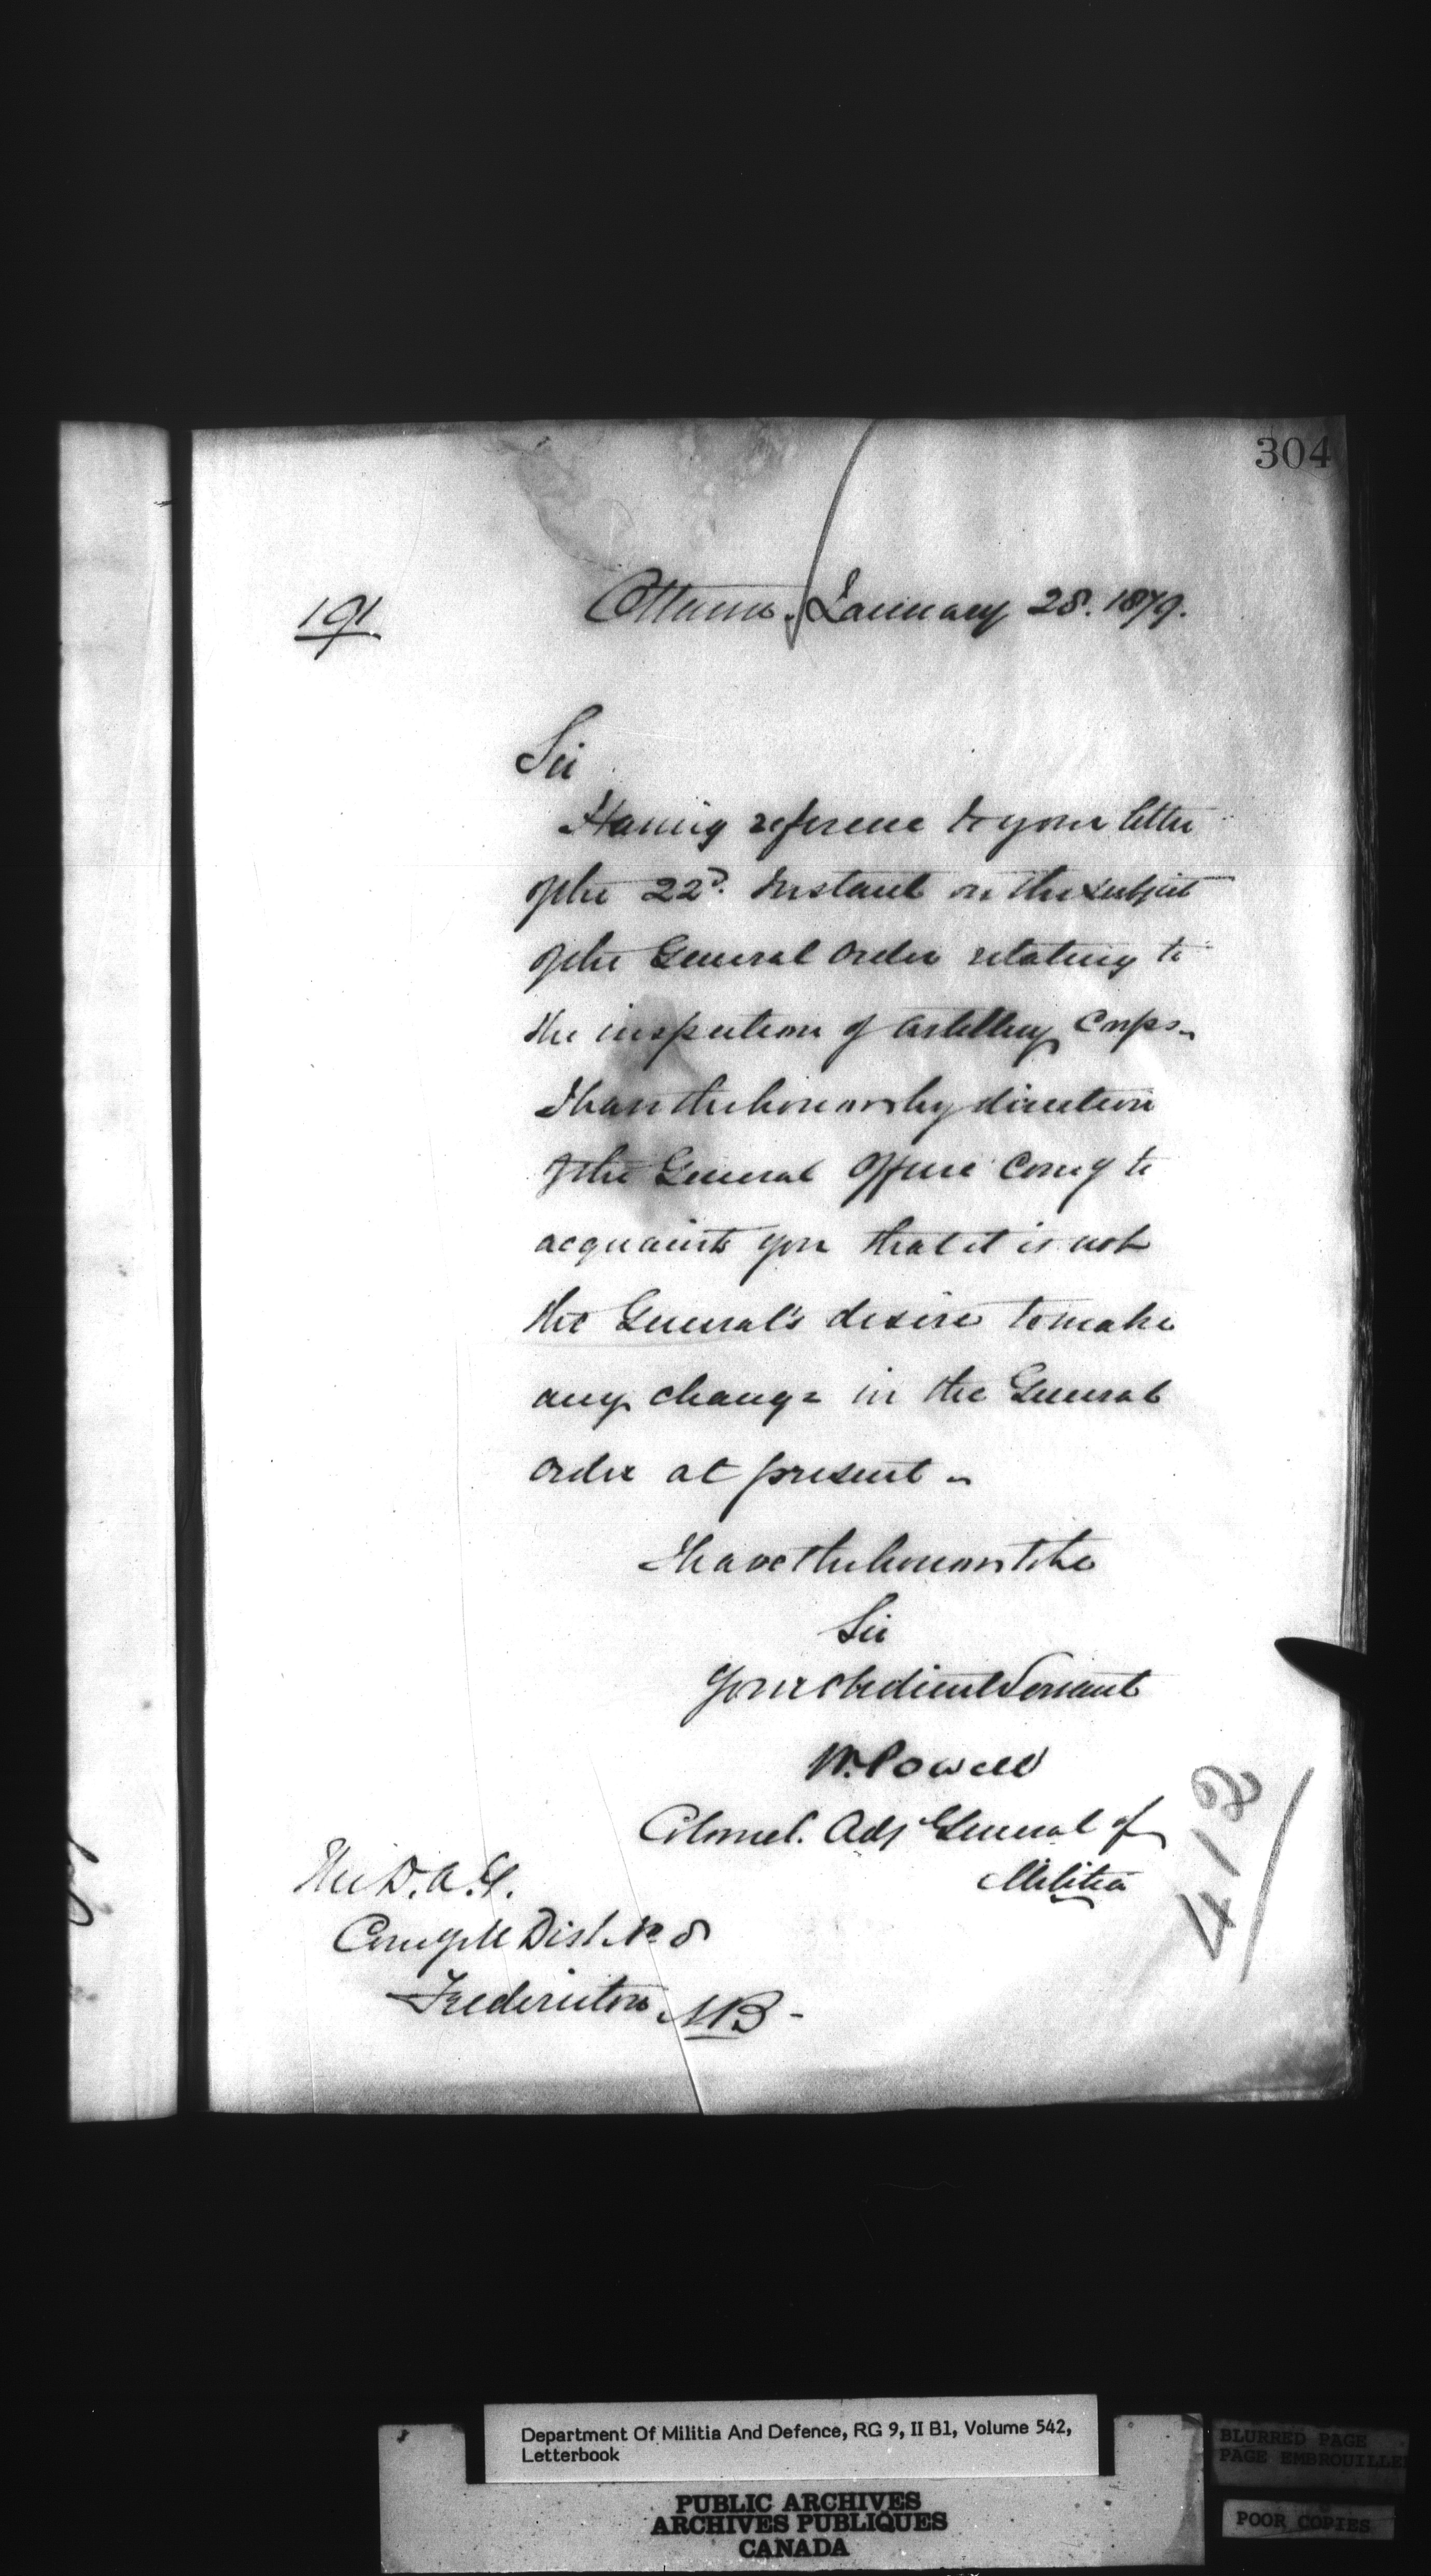 304
191
Ottawa. January 28. 1879.
Sir
Having reference to your letter
of the 22d. Instant on the subject
of the General Order relating to
the inspection of Artillery Corps_
I have the honor by direction
of the General Officer Comg to
acquaint you that it is not
the General's desire to make
any change in the General
Order at present _
I have the honor to be
Sir
Your obedient Servant
W. Powell
Colonel. Adj General of
Militia
The D. A. G.
Comg Mil Dist. No 8
Fredericton NB -
Department Of Militia And Defence, RG 9, II B1, Volume 542,
Letterbook
PUBLIC ARCHIVES
ARCHIVES PUBLIQUES
CANADA
BLURRED PAGE
PAGE EMBROUILLE
POOR COPIES